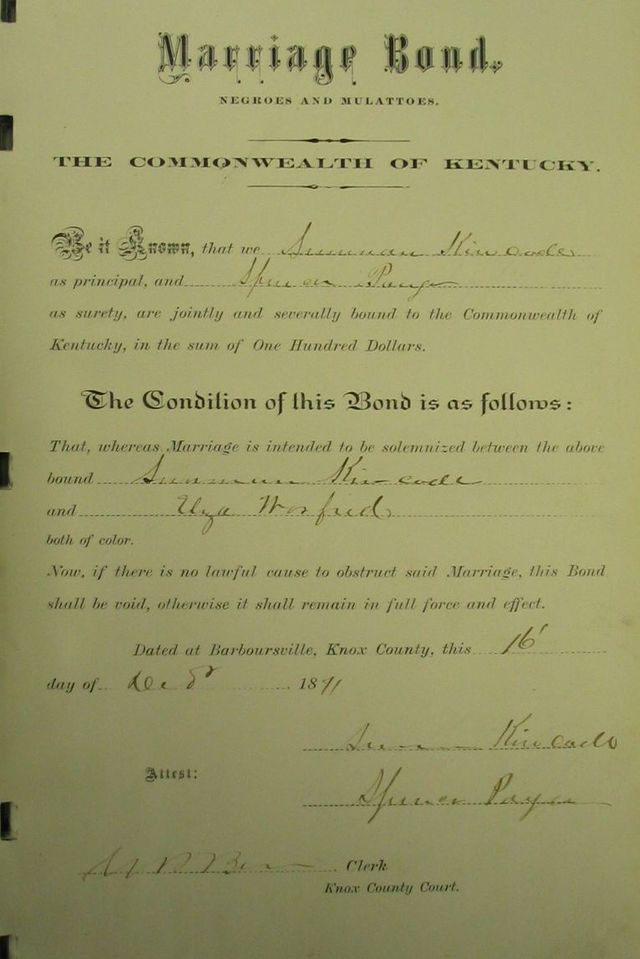 Marriage Bond.
NEGROES AND MULATTOES.
THE COMMONWEALTH OF KENTUCKY.
Be it Known, that we Kincade
as principal, and Spencer Payn
as surety, are jointly and severally bound to the Commonwealth of
Kentucky, in the sum of One Hundred Dollars.
The Condition of this Bond is as follows:
That, whereas Marriage is intended to be solemnized between the above
bound Kincade
and
both of color.
Now, if there is no lawful cause to obstruct said Marriage, this Bond
shall be void, otherwise it shall remain in full force and effect.
Dated at Barboursville, Knox County, this 16
day of Decr 1871
Kincade
Attest:
Spencer Payne
Clerk
Knox County Court.